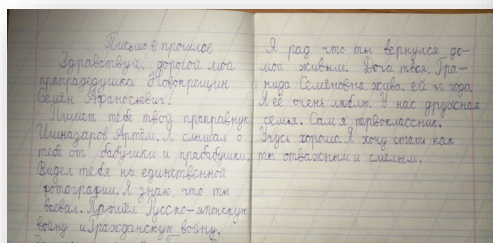 Письмо в прошлое
Здравствуй, дорогой мой
прапрадедушка Новокрещин
Семён Афанасьевич!
Пишет тебе твой праправнук
Шиназаров Артём. Я слышал о
тебе от бабушки и прабабушки.
Видел тебя на единственной
фотографии. Я знаю, что ты
воевал. Прошёл Русско-японскую
войну и Гражданскую войну.
Я рад что ты вернулся до-
мой живым. Доча твоя, Гра-
нида Семёновна, жива, ей года
Я её очень люблю. У нас дружная
семья. Сам я первоклассник.
Учусь хорошо. Я хочу стать как
ты отважным и смелым.